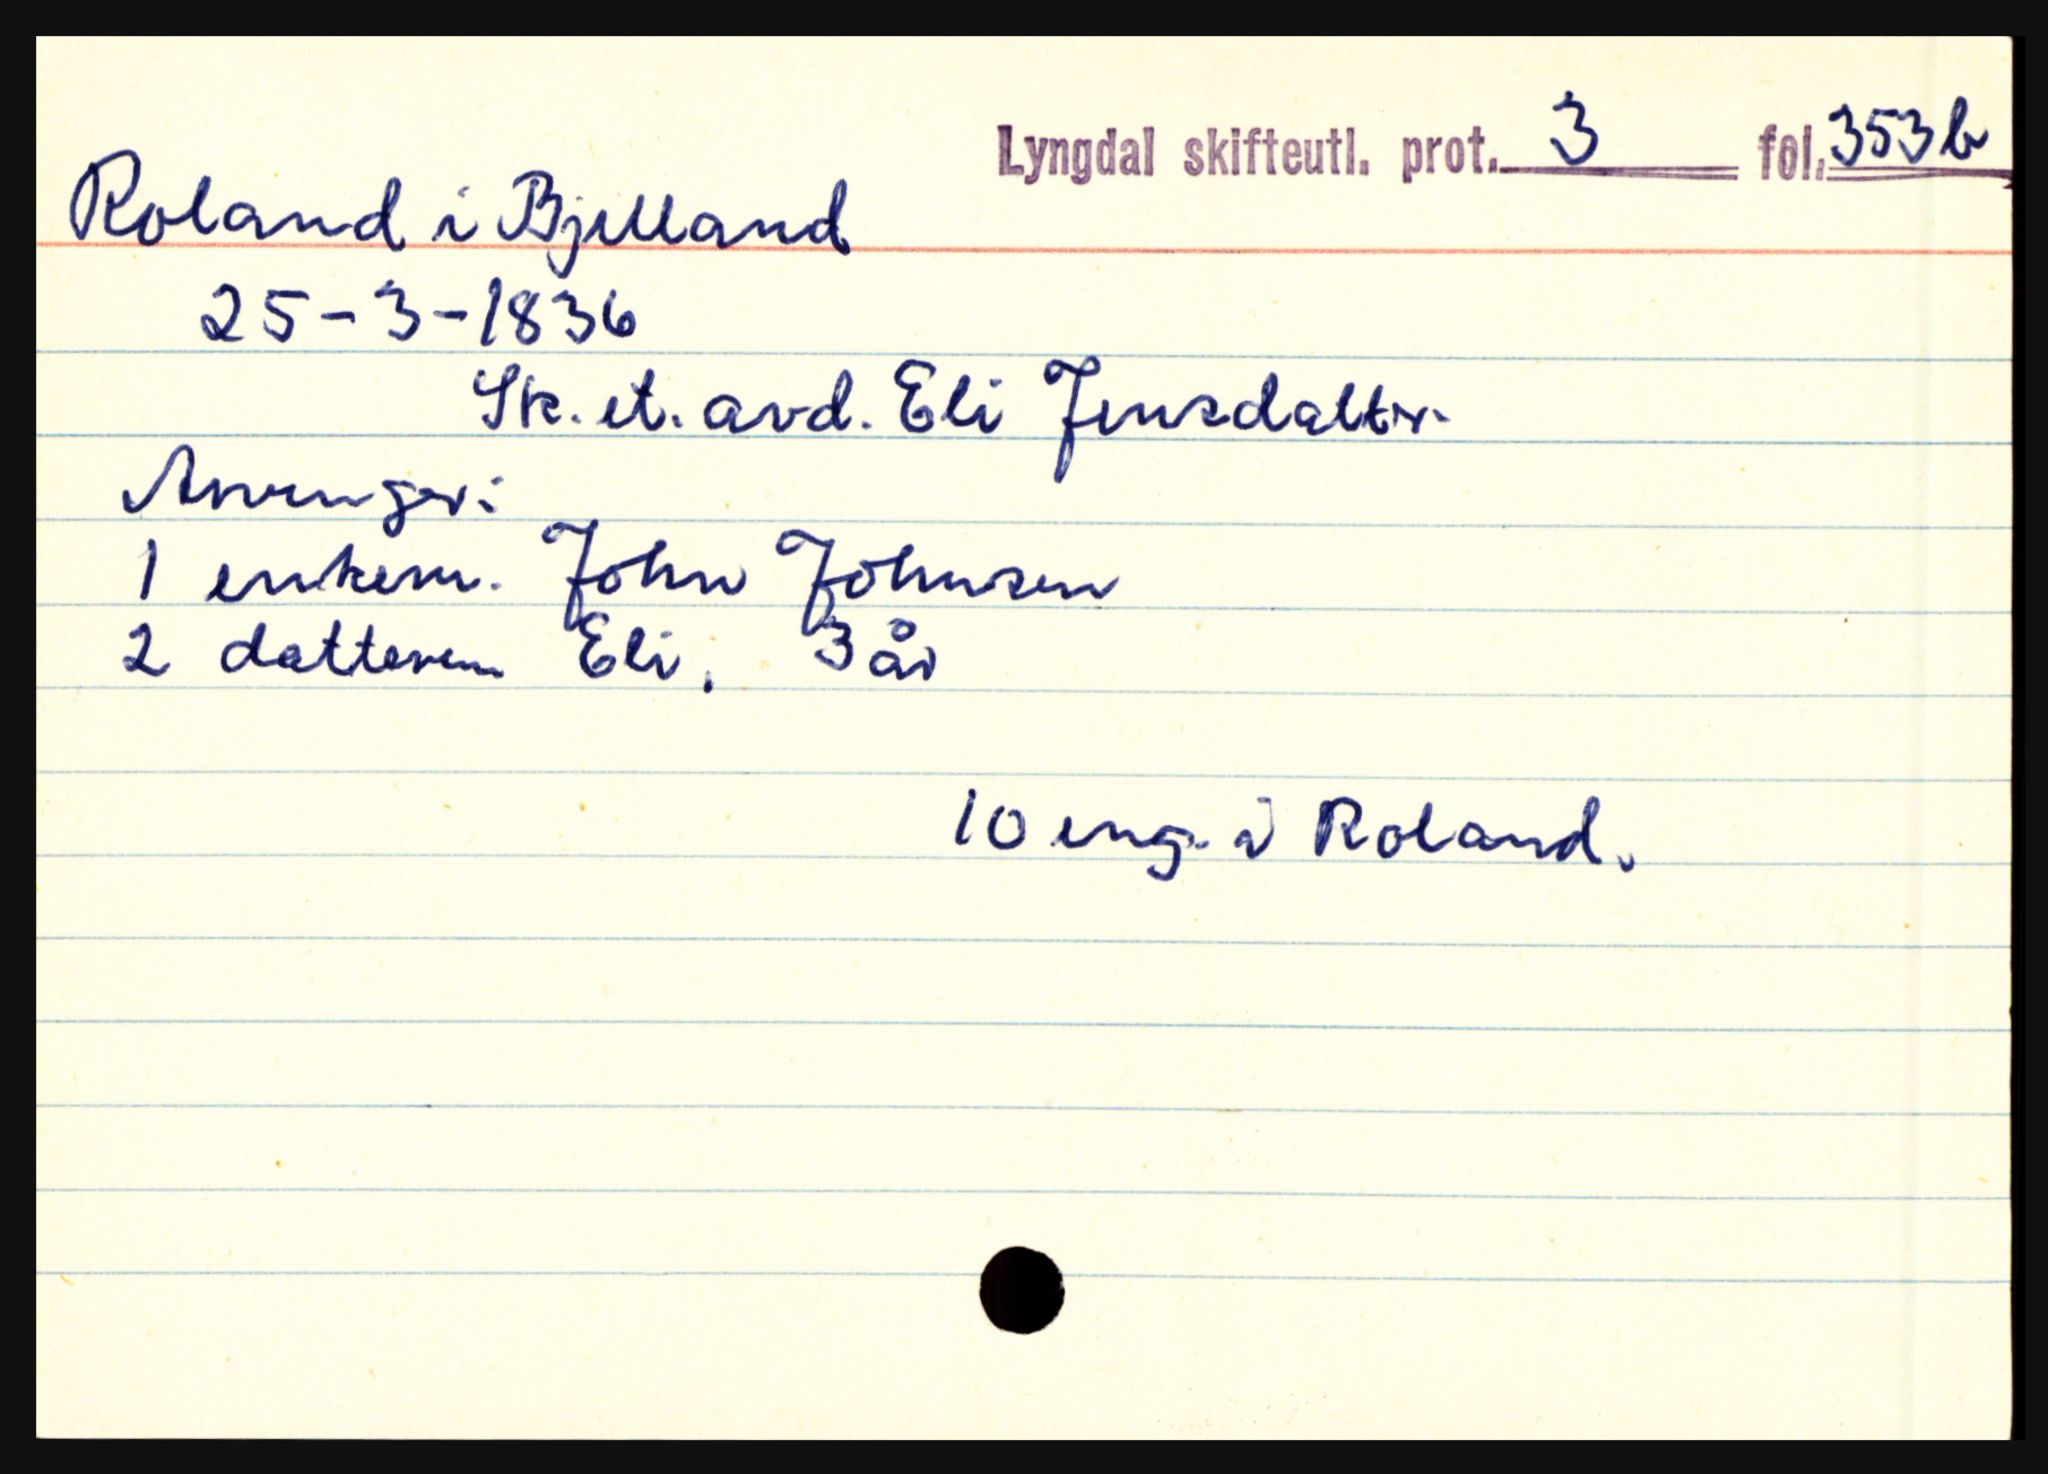 Lyngdal skifteutl. prot. 3 fol. 353b
Roland i Bjelland
25-3-1836
Sk. et. avd. Eli Jensdattr.
Arvinger:
1 enkem. John Johnsen
2 datteren Eli, 3 år
10 eng. i Roland.